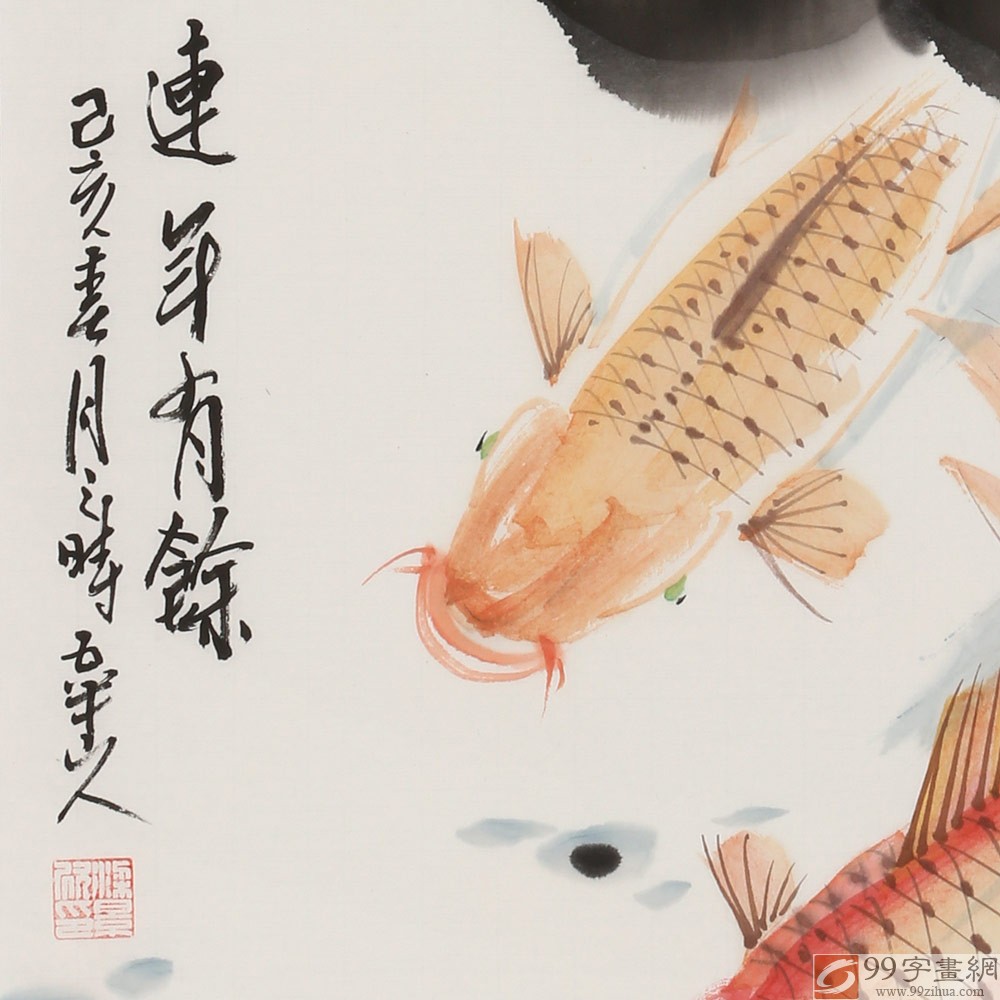 連年有餘
己亥春月之時
99字畫網
www.99zihua.com